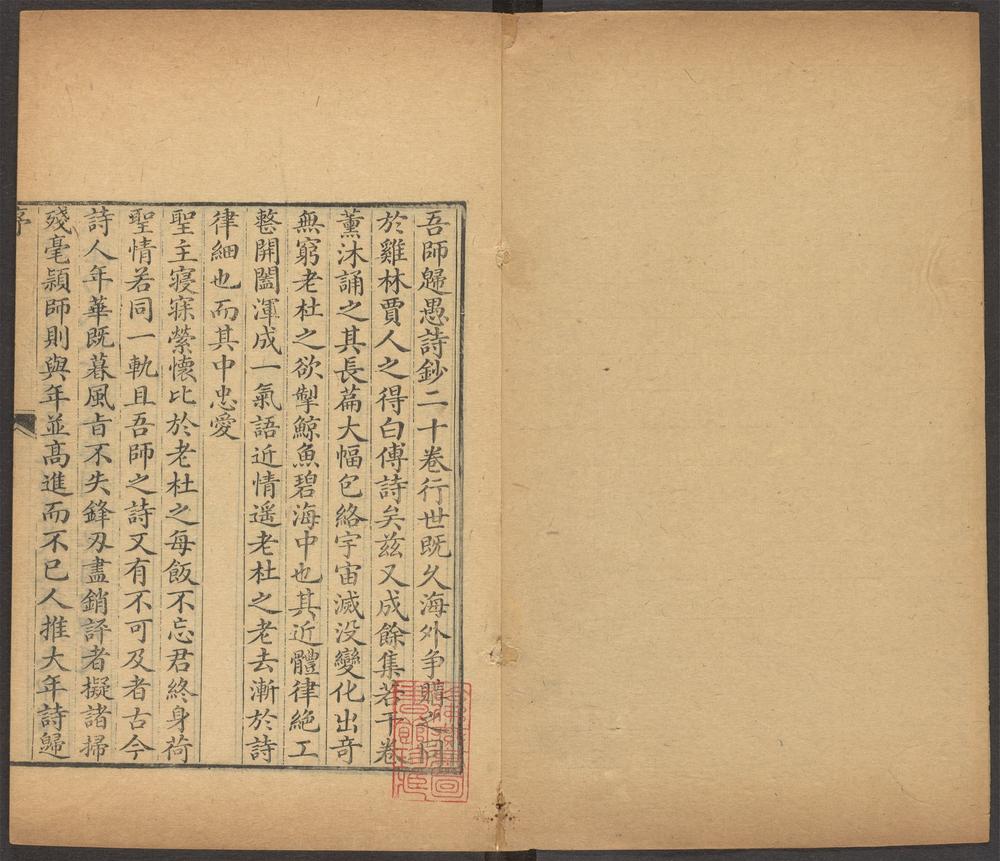 吾師歸愚詩鈔二十卷行世既久海外争購之同
於雞林賈人之得白傅詩矣兹又成餘集若干卷
薰沐誦之其長篇大幅包絡宇宙滅没變化出竒
無窮老杜之欲掣鯨魚碧海中也其近體律絶工
整開闔渾成一氣語近情遥老杜之老去漸於詩
律細也而其中忠愛
聖主寝寐縈懷比於老杜之每飯不忘君終身荷
聖情若同一軌且吾師之詩又有不可及者古今
詩人年華既暮風旨不失鋒刃盡銷評者擬諸掃
殘毫穎師則與年並髙進而不已人推大年詩歸
序